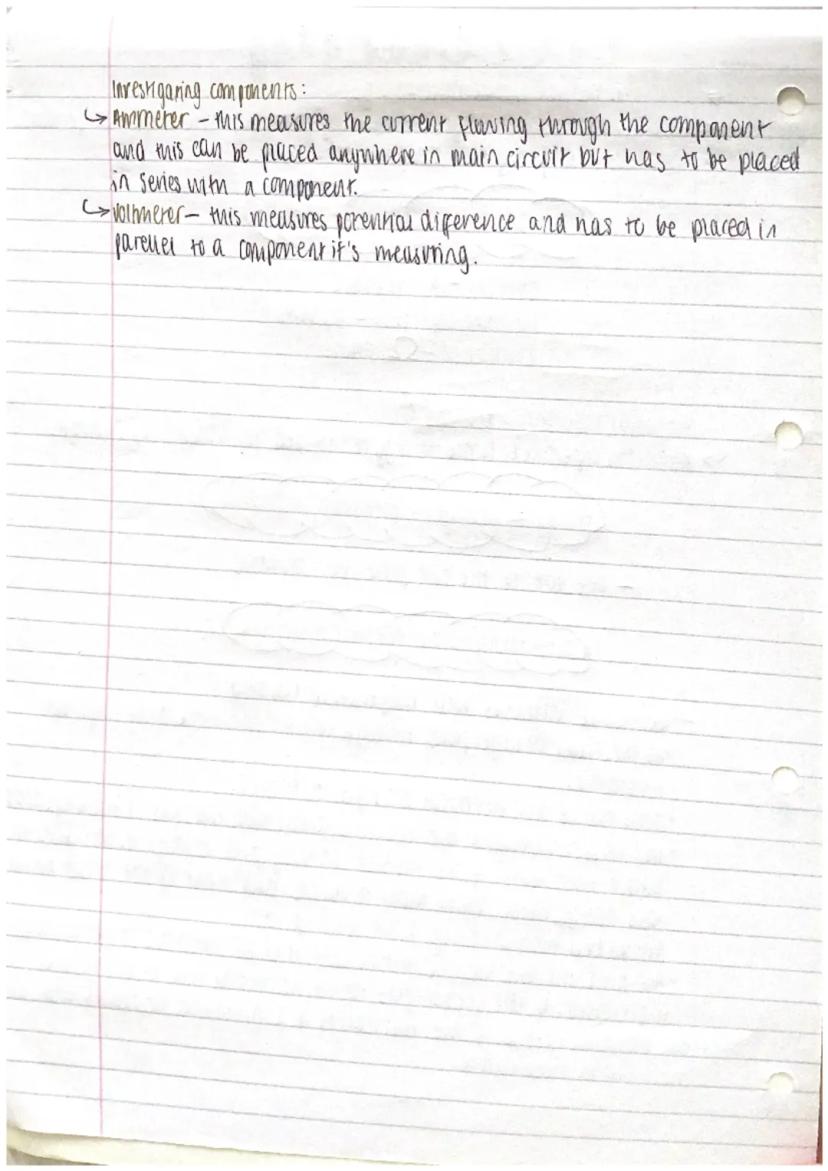 Investigating components:
↳ Ammeter - this measures the current flowing through the component
and this can be placed anywhere in main circuit but has to be placed
in series with a component.
↳ Voltmeter - this measures potential diference and has to be placed in
parellel to a component it's measuring.